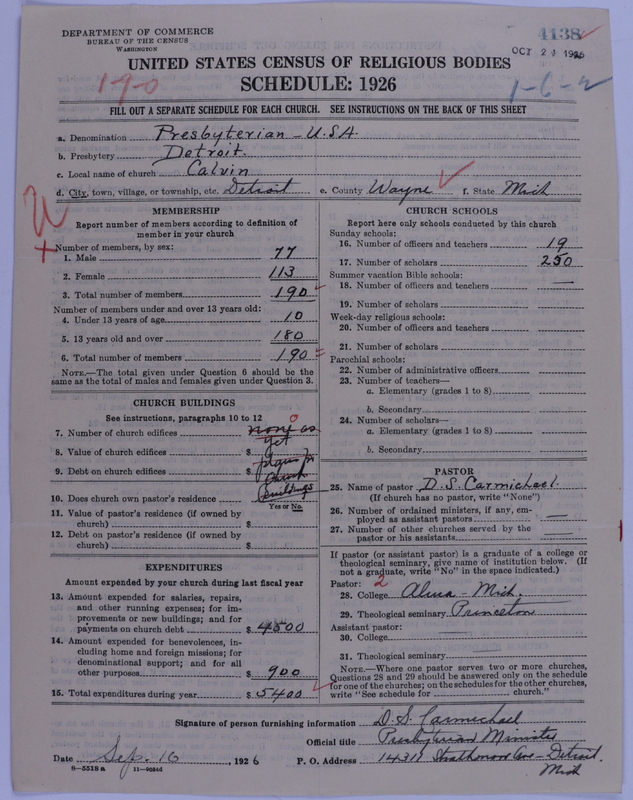 DEPARTMENT OF COMMERCE
BUREAU OF THE CENSUS
WASHINGTON
4138
OCT 21 1926
UNITED STATES CENSUS OF RELIGIOUS BODIES
SCHEDULE: 1926
1-9-0
1-6-2
FILL OUT A SEPARATE SCHEDULE FOR EACH CHURCH. SEE INSTRUCTIONS ON THE BACK OF THIS SHEET
a. Denomination Presbyterian - U.S.A.
b. Presbytery Detroit.
c. Local name of church Calvin
d. City, town, village, or township, etc. Detroit e. County Wayne f. State Mich
MEMBERSHIP
Report number of members according to definition of
member in your church
Number of members, by sex:
1. Male 77
2. Female 113
3. Total number of members 190
Number of members under and over 13 years old:
4. Under 13 years of age 10
5. 13 years old and over 180
6. Total number of members 190
NOTE.—The total given under Question 6 should be
same as the total of males and females given under Question 3.
CHURCH BUILDINGS
See instructions, paragraphs 10 to 12
0
7. Number of church edifices none as
yet
8. Value of church edifices $
9. Debt on church edifices $
church
buildings
10. Does church own pastor's residence
Yes or No.
11. Value of pastor's residence (if owned by
church) $
12. Debt on pastor's residence (if owned by
church) $
EXPENDITURES
Amount expended by your church during last fiscal year
13. Amount expended for salaries, repairs,
and other running expenses; for im-
provements or new buildings; and for
payments on church debt $ 4500
14. Amount expended for benevolences, in-
cluding home and foreign missions; for
denominational support; and for all
other purposes $ 900
15. Total expenditures during year $ 5400
CHURCH SCHOOLS
Report here only schools conducted by this church
Sunday schools:
16. Number of officers and teachers 19
17. Number of scholars 250
Summer vacation Bible schools:
18. Number of officers and teachers —
19. Number of scholars
Week-day religious schools:
20. Number of officers and teachers
21. Number of scholars
Parochial schools:
22. Number of administrative officers
23. Number of teachers—
a. Elementary (grades 1 to 8)
b. Secondary
24. Number of scholars—
a. Elementary (grades 1 to 8)
b. Secondary
PASTOR
25. Name of pastor D. S. Carmichael.
(If church has no pastor, write "None")
26. Number of ordained ministers, if any, em-
ployed as assistant pastors —
27. Number of other churches served by the
pastor or his assistants —
If pastor (or assistant pastor) is a graduate of a college or
theological seminary, give name of institution below. (If
not a graduate, write "No" in the space indicated.)
Pastor: 2
28. College Alma - Mich.
29. Theological seminary Princeton
Assistant pastor:
30. College
31. Theological seminary
NOTE.—Where one pastor serves two or more churches,
Questions 28 and 29 should be answered only on the schedule
for one of the churches; on the schedules for the other churches,
write "See schedule for church."
Signature of person furnishing information D. S. Carmichael
Official title Presbyterian Minister
Date Sep. 16, 1926 P. O. Address Strathmoor Ave - Detroit.
Mich
8-5518 a